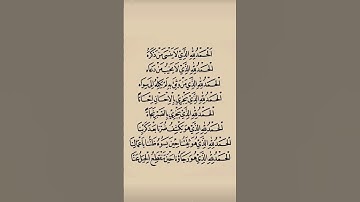 الْحَمْدُ لِلَّهِ الَّذِي لَا يَنْسَى مَنْ ذَكَرَهُ
الْحَمْدُ لِلَّهِ الَّذِي لَا يَخِيبُ مَنْ دَعَاهُ
الْحَمْدُ لِلَّهِ الَّذِي مَنْ وَثِقَ بِهِ لَمْ يَكِلْهُ إِلَى سِوَاهُ
الْحَمْدُ لِلَّهِ الَّذِي يَجْزِي بِالْإِحْسَانِ إِحْسَانًا
الْحَمْدُ لِلَّهِ الَّذِي يَجْزِي بِالصَّبْرِ نَجَاةً
الْحَمْدُ لِلَّهِ الَّذِي هُوَ يَكْشِفُ ضُرَّنَا بَعْدَ كَرْبِنَا
الْحَمْدُ لِلَّهِ الَّذِي هُوَ حِينَ يَسُوءُ ظَنُّنَا بِأَعْمَالِنَا
الْحَمْدُ لِلَّهِ الَّذِي هُوَ رَجَاؤُنَا حِينَ تَنْقَطِعُ الْحِيَلُ عَنَّا